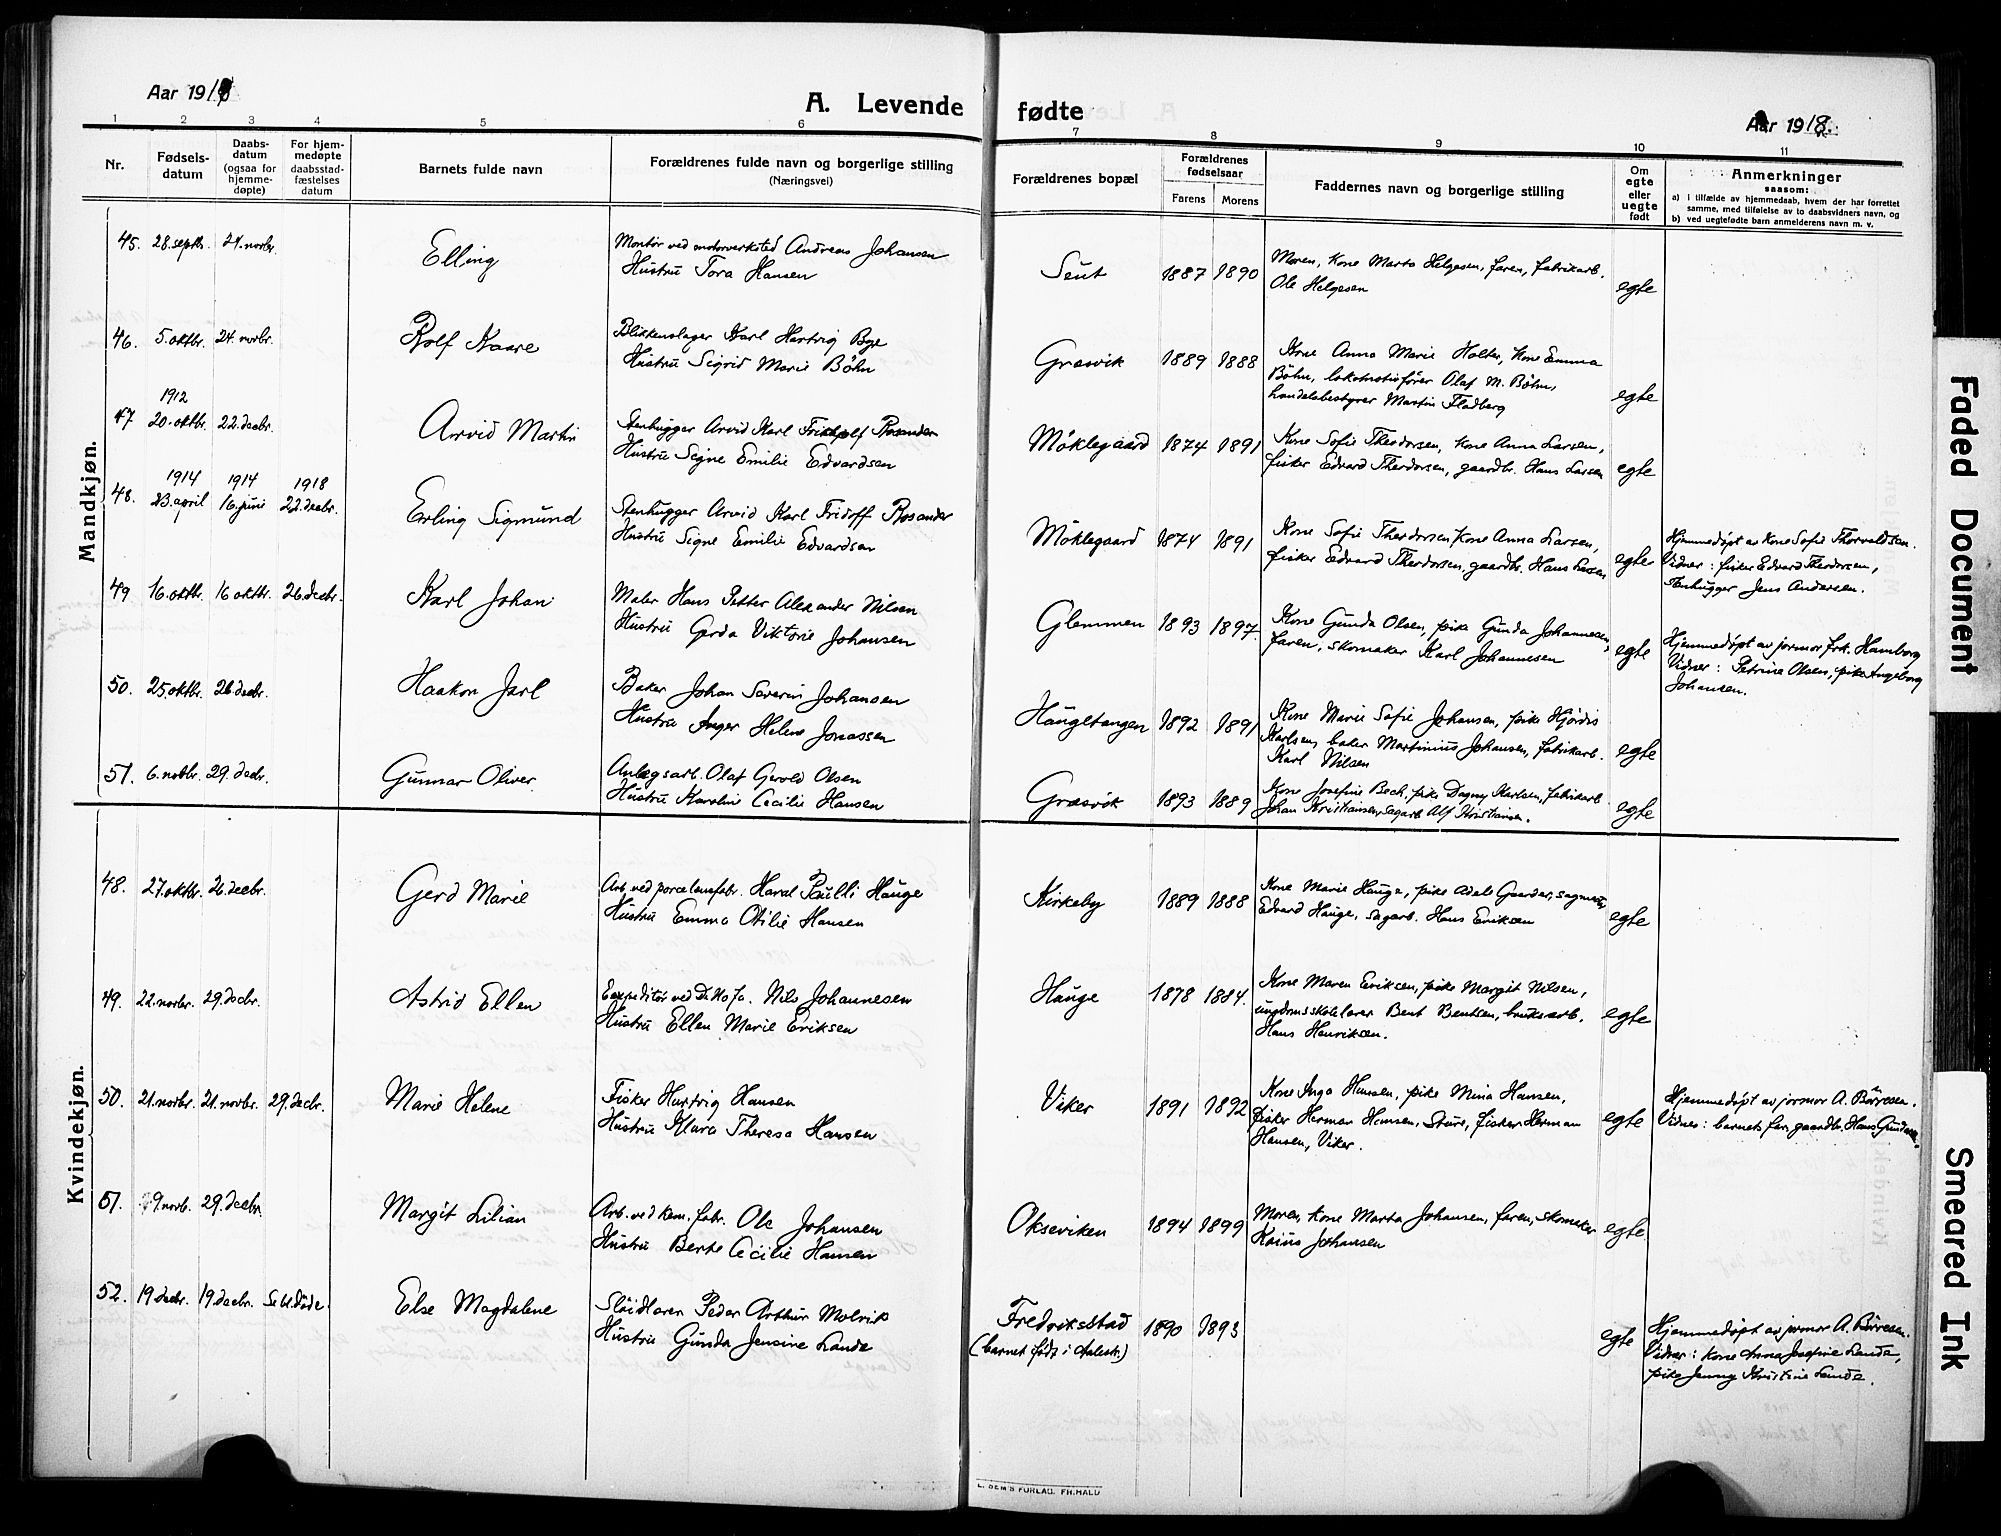 Aar 1918
A. Levende
fødte
Aar 1918.
1 2 3 4 5 6 7 8 9 10 11
Nr.
Fødsels-
datum
Daabs-
datum
(ogsaa for
hjemme-
døpte)
For hjem-
medøpte
daabsstad-
fæstelses
datum
Barnets fulde navn
Forældrenes fulde navn og borgerlige stilling
(Næringsvei)
Forældrenes bopæl
Forældrenes
fødselsaar
Farens Morens
Faddernes navn og borgerlige stilling
Om
egte
eller
uegte
født
Anmerkninger
saasom:
a) i tilfælde av hjemmedaab, hvem der har forrettet
samme, med tilføielse av to daabsvidners navn, og
b) ved uegtefødte barn anmelderens navn m. v.
Mandkjøn.
45. 28. septbr. 24. novbr. Elling
Montør ved motorverksted Andreas Johansen
Hustru Tora Hansen
Seut 1887 1890
Moren, Kone Marta Helgesen, faren, fabrikarb.
Ole Helgesen
egte
46. 5. oktbr. 24. novbr. Rolf Kaare
Blikkenslager Karl Hartvig Bye
Hustru Sigrid Marie Bøhn
Græsvik 1889 1888
Kone Anna Marie Holter, Kone Emma
Bøhn, lokomotivfører Olaf M. Bøhn,
handelsbestyrer Martin Fladberg
egte
1912
47 20. oktbr. 22. decbr. Arvid Martin
Stenhugger Arvid Karl Fridolf Rosander
Hustru Signe Emilie Edvardsen
Møklegaard 1874 1891
Kone Sofie Theodorsen, Kone Anna Larsen,
fisker Edvard Theodorsen, gaardbr. Hans Larsen
egte
1914 1914 1918
48. 23. april 16. juni 22. decbr. Erling Sigmund
Stenhugger Arvid Karl Fridoff Rosander
Hustru Signe Emilie Edvardsen
Møklegaard 1874 1891
Kone Sofie Theodorsen, Kone Anna Larsen,
fisker Edvard Theodorsen, gaardbr. Hans Larsen
egte
Hjemmedøpt av Kone Sofie Thorvaldsen.
Vidner: fisker Edvard Theodorsen,
stenhugger Jens Andersen.
49 16. oktbr. 16 oktbr. 26. decbr. Karl Johan
Maler Hans Petter Alexander Nilsen
Hustru Gerda Viktorie Johansen
Glemmen 1893 1897.
Kone Gunda Olsen, pike Gunda Johannesen,
faren, skomaker Karl Johannesen
egte
Hjemmedøpt av jormor frk. Hamborg
Vidner: Petrine Olsen, pike Angeborg
Johansen.
50. 25. oktbr. 26 decbr. Haakon Jarl
Baker Johan Severin Johansen
Hustru Inger Helene Jonassen
Haugltangen 1892 1891
Kone Marie Sofie Johansen, pike Hjørdis
Karlsen, baker Martinius Johansen, fabrikarb.
Karl Nilsen
egte
51. 6. novbr. 29. decbr. Gunnar Oliver
Anlægsarb. Olaf Gerold Olsen
Hustru Karoline Cecilie Hansen
Græsvik 1893 1889
Kone Josefine Bech, pike Dagny Karlsen, fabrikarb
Johan Kristiansen, sagarb. Alf Kristiansen.
egte
Kvindekjøn.
48. 27. oktbr. 26. decbr. Gerd Marie
Arb. ved porcelensfabr. Haral Paulli Hauge
Hustru Emma Otilie Hansen
Kirkeby 1889 1888
Kone Marie Hauge, pike Adele Gaarder, sagmester
Edvard Hauge, sagarb. Hans Eriksen
egte
49. 22. novbr. 29. decbr. Astrid Ellen
Expeditør ved De No fa. Nils Johannesen
Hustru Ellen Marie Eriksen
Hauge 1878 1884.
Kone Maren Eriksen, pike Margit Nilsen,
ungdomsskolelærer Bent Bentsen, bruksarb.
Hans Henriksen.
egte
50. 21. novbr. 21. novbr. 29. decbr. Marie Helene
Fisker Hartvig Hansen
Hustru Klara Theresa Hansen
Viker 1891 1892
Kone Inga Hansen, pike Mina Hansen,
fisker Herman Hansen, Sture, fisker Herman
Hansen, Viker.
egte
Hjemmedøpt av jormor A. Børresen.
Vidner: barnets far, gaardbr. Hans Gundersen.
51. 9. novb. 29. decbr. Margit Lilian
Arb. ved kem. fabr. Ole Johansen
Hustru Berte Cecilie Hansen
Okseviken 1894 1899
Moren, Kone Marta Johansen, faren, skomaker
Kaius Johansen
egte
52. 19 decbr. 19. decbr. Se u. døde. Else Magdalene
Sløidlærer Peder Arthur Molvik
Hustru Gunda Jensine Lande
Fredriksstad
(barnet født i Aalestr.)
1890 1893
egte
Hjemmedøpt av jormor A. Børresen.
Vidner: Kone Anna Josefine Lande,
pike Jenny Kristine Lande.
E. SEM'S FORLAG, FR.HALD
Faded Document
Smeared Ink